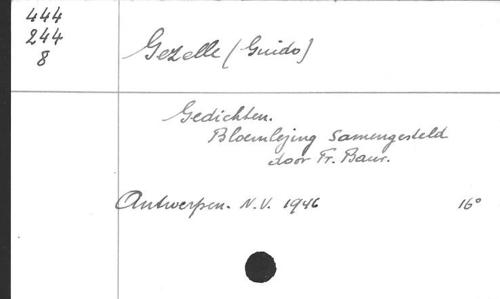 444
244
8
Gezelle (Guido)
Gedichten.
Bloemlezing samengesteld
door Fr. Baur.
Antwerpen. N.V. 1946 16°